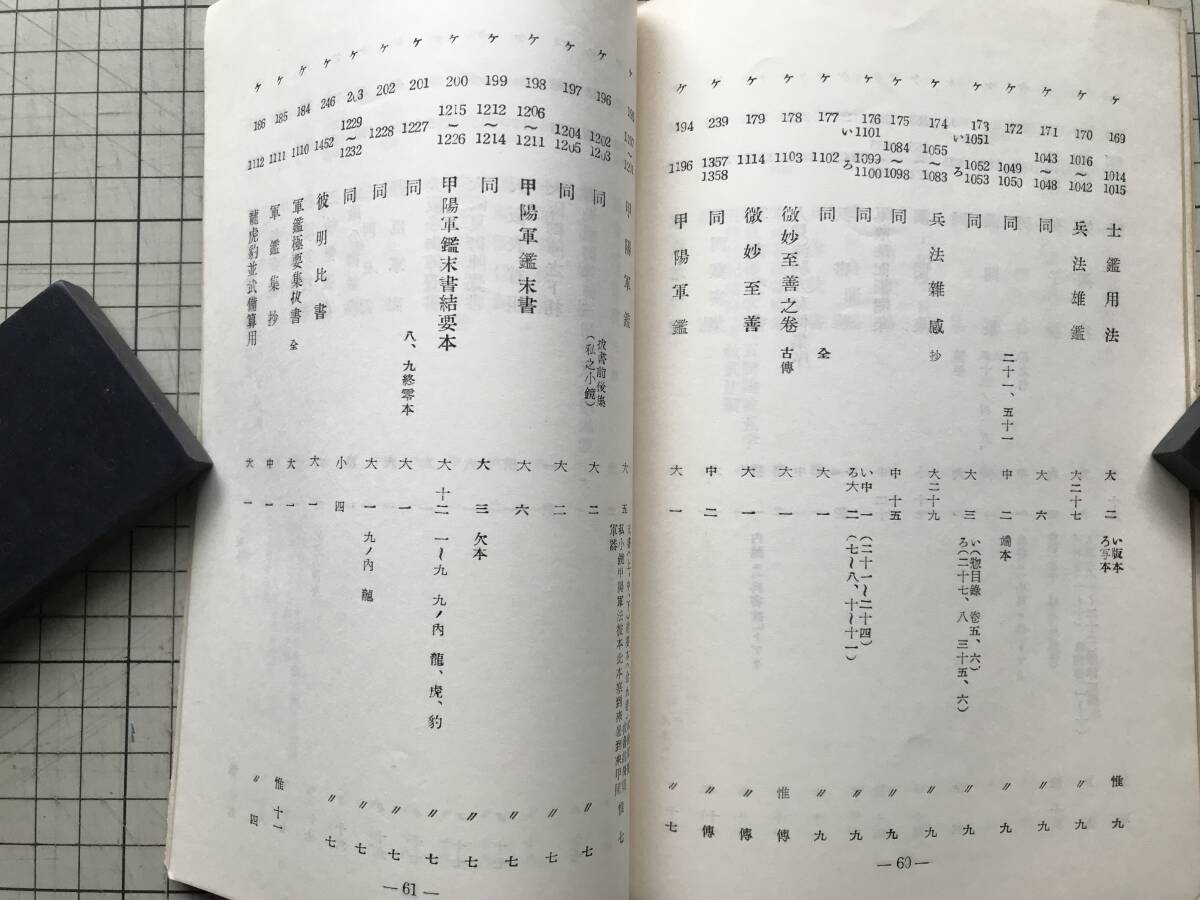 ケ 169 1014 1015 士鑑用法 大 二 い版本 ろ写本 惟 九
ケ 170 1016〜1042 兵法雄鑑 大二十七 〃 九
ケ 171 1043〜1048 同 大 六 〃 九
ケ 172 1049 1050 同 二十一、五十一 中 二 端本 〃 九
ケ 173 い1051 ろ1052 1053 同 大 三 い(惣目錄 卷五、六) ろ(二十七、八 三十五、六) 〃 九
ケ 174 1055〜1083 兵法雜感 抄 大二十九 〃 九
ケ 175 1084〜1098 同 中 十五 〃 九
ケ 176 い1101 ろ1099 1100 同 い中 一 (二十一〜二十四) ろ大 二 (七〜八、十〜十一) 〃 九
ケ 177 1102 同 全 大 一 〃 九
ケ 178 1103 微妙至善之卷 古傳 大 一 惟 傳
ケ 179 1114 微妙至善 大 一 〃 傳
ケ 239 1357 1358 同 中 二 〃 傳
ケ 194 1196 甲陽軍鑑 大 一 〃 七
— 60 —
ケ 甲陽軍鑑 大 五 惟 七
ケ 196 1202 1203 同 拔書前後集 (私之小鏡) 大 二 〃 七
ケ 197 1204 1205 同 大 二 〃 七
ケ 198 1206〜1211 甲陽軍鑑末書 大 六 〃 七
ケ 199 1212〜1214 同 大 三 欠本 〃 七
ケ 200 1215〜1226 甲陽軍鑑末書結要本 大 十二 一〜九 九ノ內 龍、虎、豹 〃 七
ケ 201 1227 同 八、九終零本 大 一 〃 七
ケ 202 1228 同 大 一 九ノ內 龍 〃 七
ケ 203 1229〜1232 同 小 四 〃 七
ケ 246 1452 彼明比書 大 一
ケ 184 1110 軍鑑極要集抜書 全 大 一
ケ 185 1111 軍鑑集抄 中 一 惟 十一
ケ 186 1112 龍虎豹並式備算用 大 一 〃 四
— 61 —